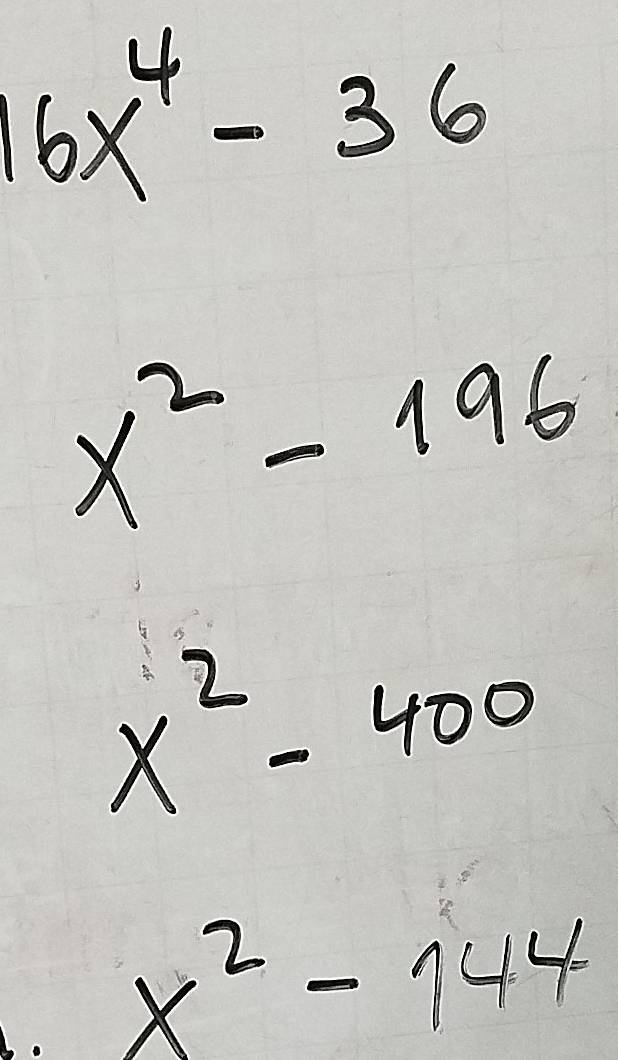 16x⁴ - 36
x² - 196
x² - 400
x² - 144